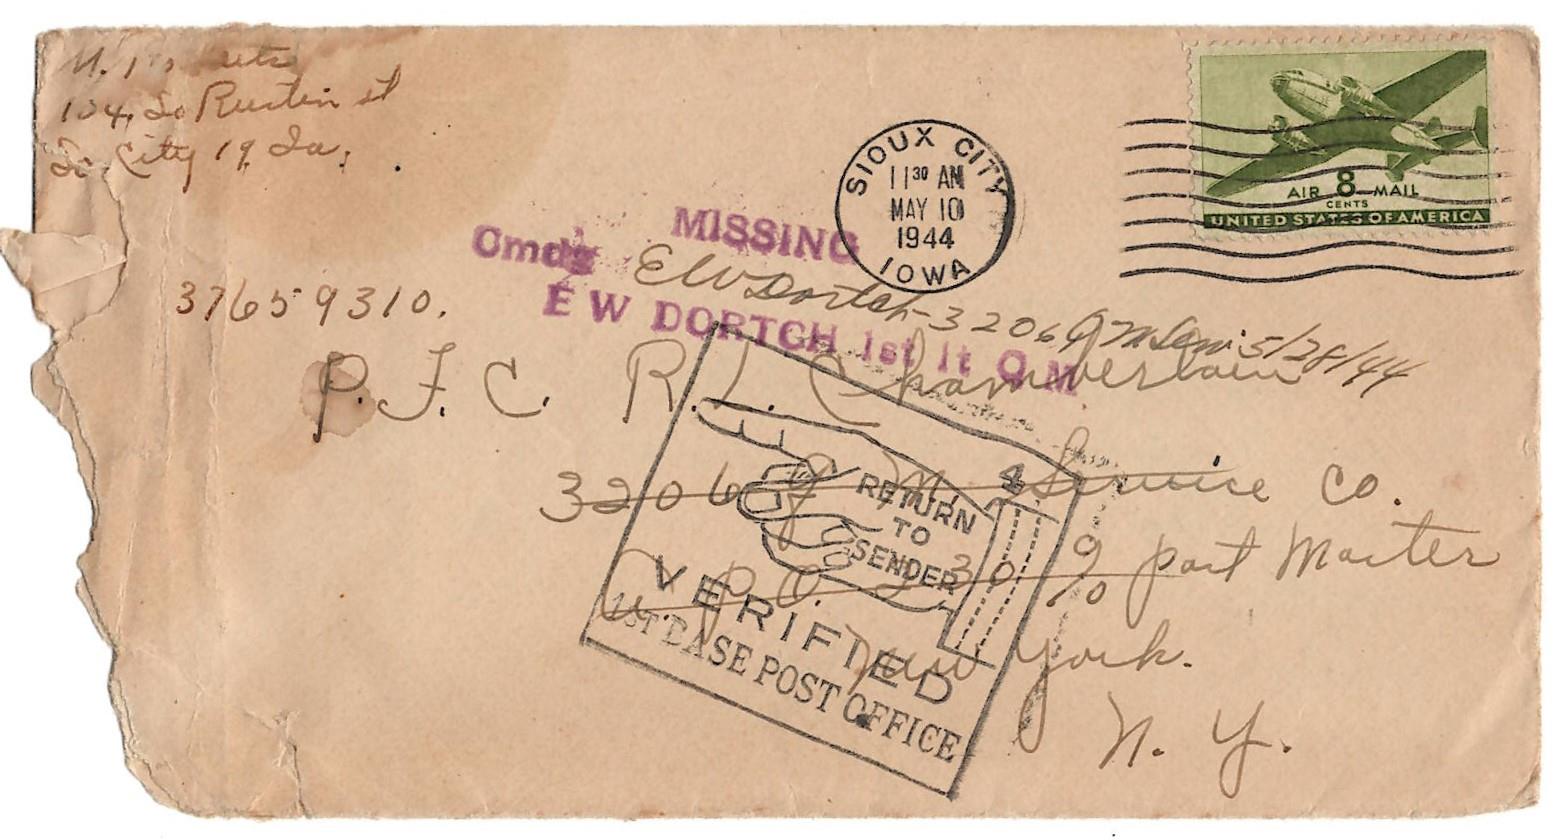 104, So Rustin st
So City 19, Ia.
SIOUX CITY
11 30 AM
MAY 10
1944
IOWA
AIR 8 MAIL
CENTS
UNITED STATES OF AMERICA
MISSING
Cmdg EW Dortch - 3206 QM Serv. 5/28/44
E W DORTCH 1st lt Q M
37659310.
P.F.C. R.L. Chamberlain
3206 Q M. Service Co.
A.P.O. 230 % post Master
New York.
N. Y.
4
RETURN
TO
SENDER
VERIFIED
1ST BASE POST OFFICE